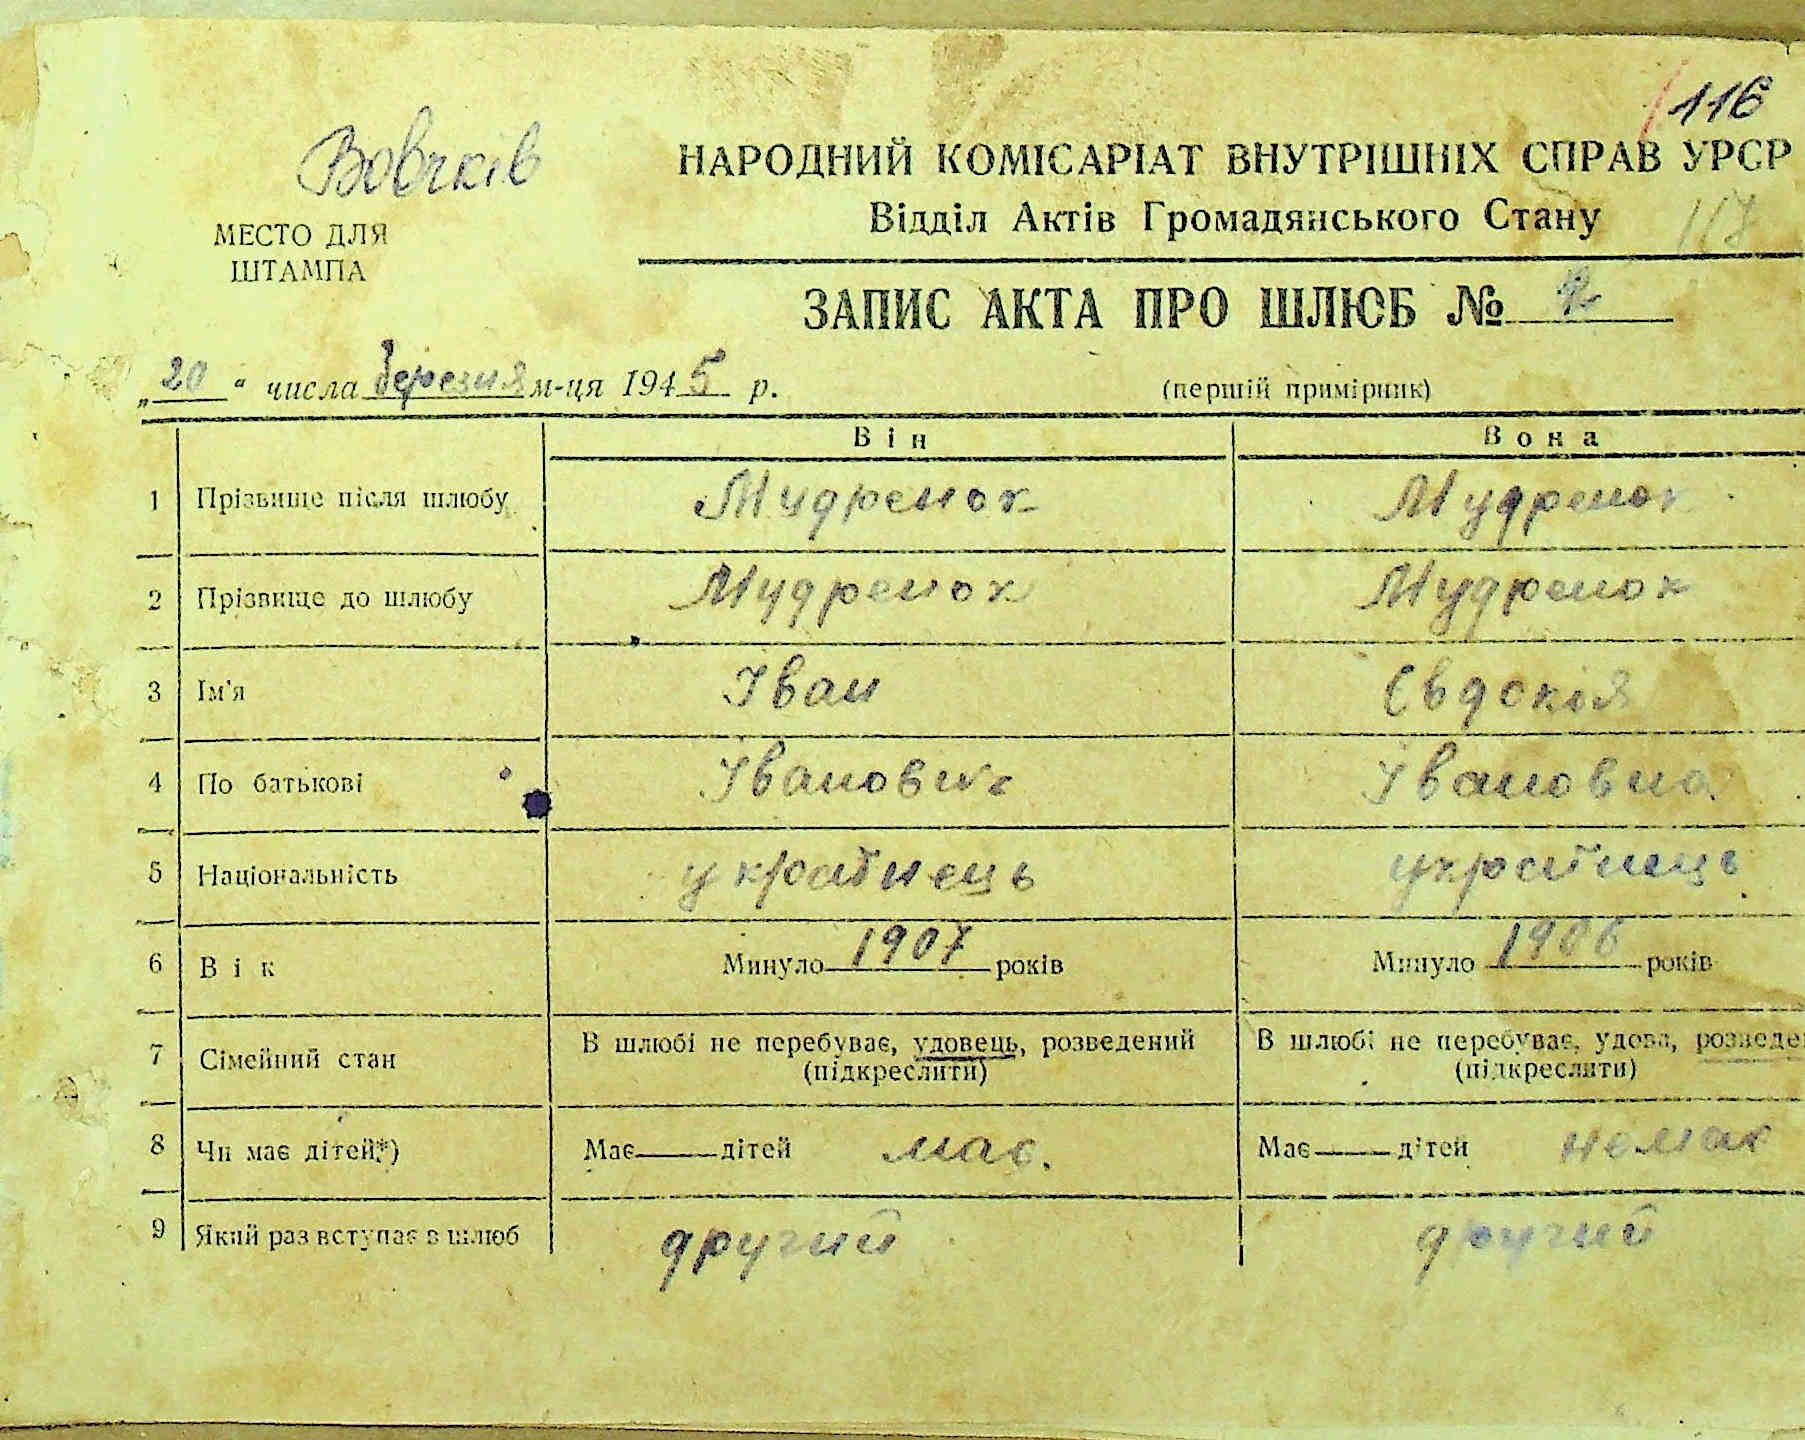 116
Вовчків
НАРОДНИЙ КОМІСАРІАТ ВНУТРІШНІХ СПРАВ УРСР
Відділ Актів Громадянського Стану 117
МЕСТО ДЛЯ
ШТАМПА
ЗАПИС АКТА ПРО ШЛЮБ № 2
„20“ числа березня м-ця 1945 р. (першій примірник)
Він Вона
1 Прізвище після шлюбу Мудренок Мудренок
2 Прізвище до шлюбу Мудренок Мудренок
3 Ім'я Іван Євдокія
4 По батькові Іванович Івановна
5 Національність українець українець
6 Вік Минуло 1907 років Минуло 1906 років
7 Сімейний стан В шлюбі не перебуває, удовець, розведений В шлюбі не перебуває, удова, розведе
(підкреслити) (підкреслити)
8 Чи має дітей*) Має дітей має. Має дітей немає
9 Який раз вступає в шлюб другий другий